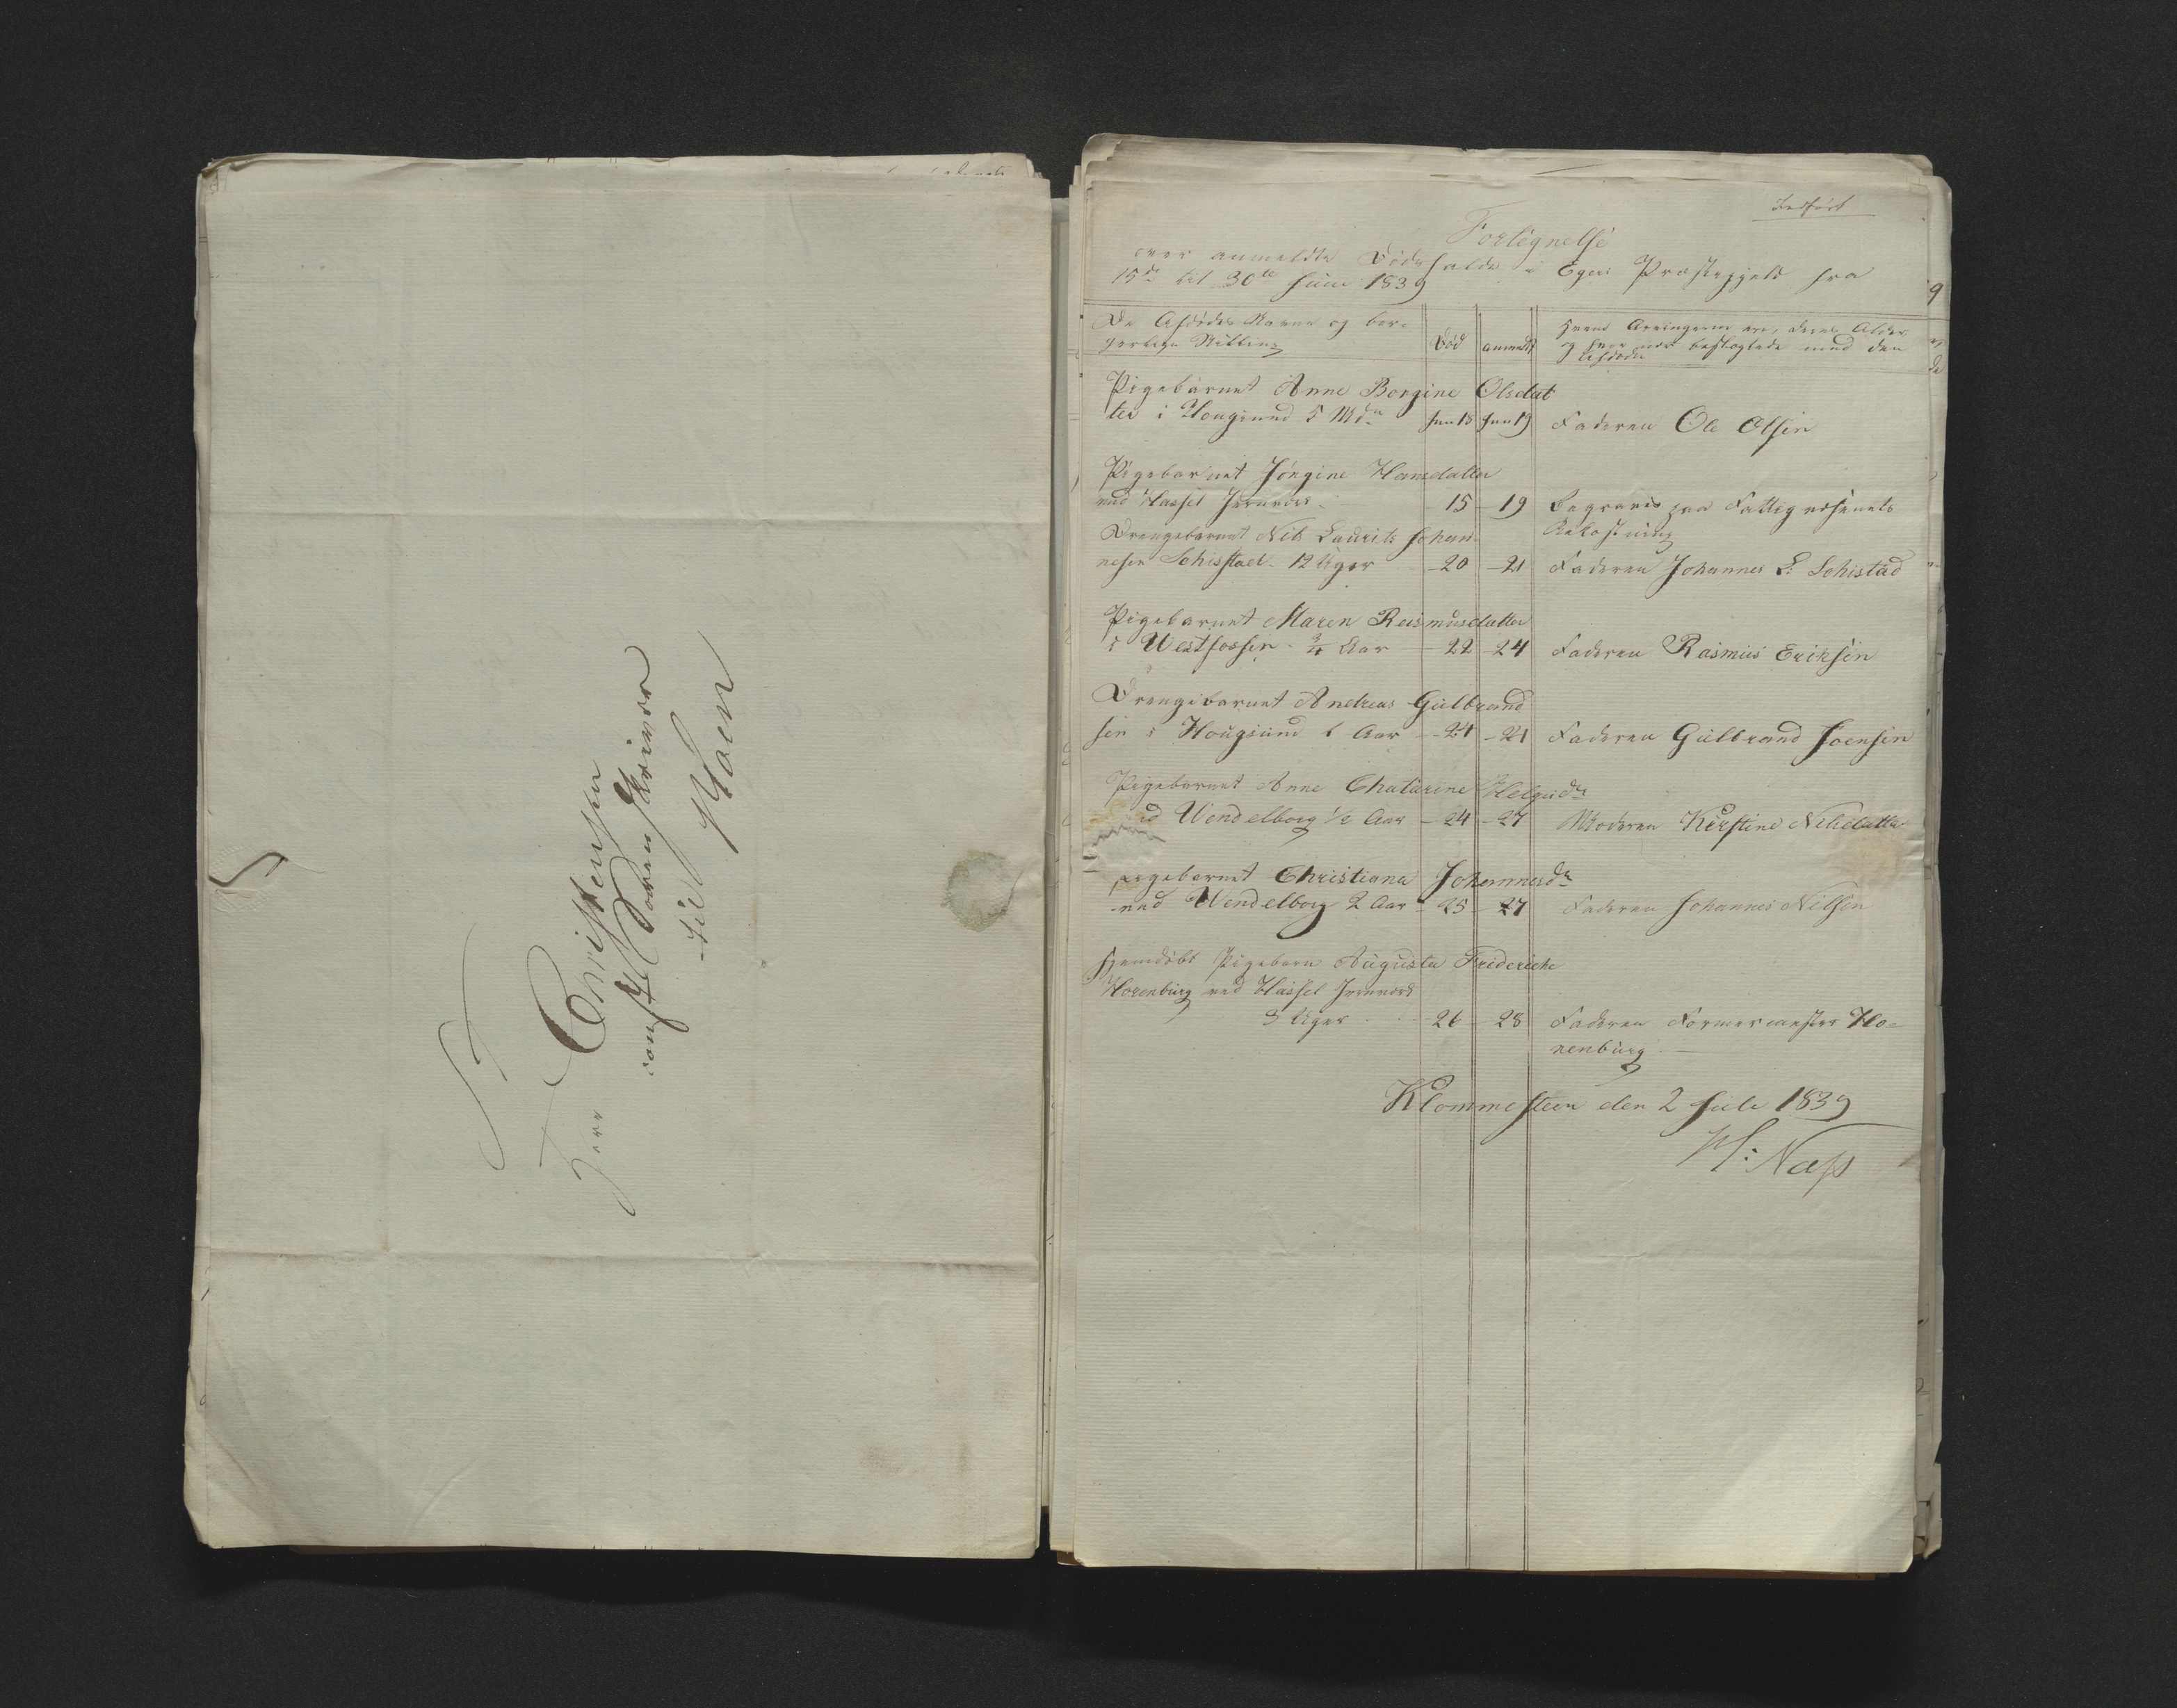 S T
Herr Christensen
const Sorenskriver
til
Indført
Fortegnelse
over anmeldte Dødsfalde i Egers Præstegjeld fra
15de til 30te Juni 1839
De Afdødes Navne og bor-
gerlige Stilling
Død
anmeldt
Hvem Arvingerne ere, deres Alder
og hvor nær beslægtede med den
Afdøde
Pigebarnet Anne Borgine Olsdat
ter i Hougsund 5 Mdr Jun 18 Jun 19 Faderen Ole Olsen
Pigebarnet Jörgine Hansdatter
ved Hassel Jernværk 15 - 19 Begraves paa Fattigvæsenets
Bekostning
Drengebarnet Nils Lauritz Johan-
nesen Schistad 12 Uger - 20 - 21 Faderen Johannes L. Schistad
Pigebarnet Maren Rasmusdatter
i Westfossen - 3/4 Aar - 22 - 24 Faderen Rasmus Eriksen
Drengebarnet Andreas Gulbrand
sen i Hougsund 6 Aar - 24 - 24 Faderen Gulbrand Joensen
Pigebarnet Anne Chatarine Helgesdr
ved Wendelborg 1/2 Aar - 24 - 27 Moderen Kirstine Nilsdatter
Pigebarnet Christiana Johannesdr
ved Wendelborg 2 Aar - 25 - 27 Faderen Johannes Nilsen
Hjemdöbt Pigebarn Augusta Frideriche
Horenburg ved Hassel Jernværk
3 Uger - 26 - 28 Faderen Formermester Ho-
renburg
Klommesteen den 2 Juli 1839
H: Næss